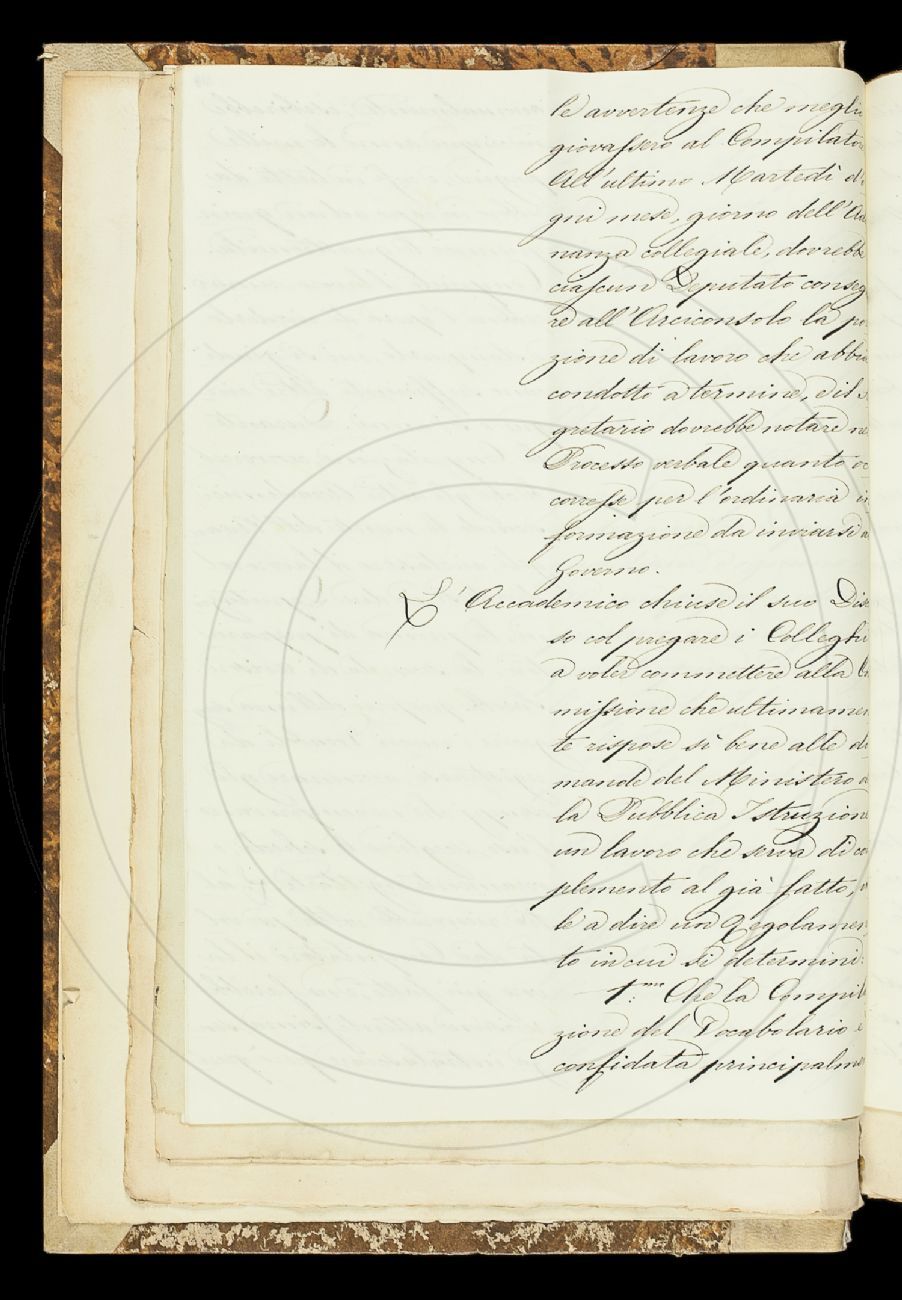 le avvertenze che megli
giovassero al Compilator
All'ultimo Martedì d'
gni mese, giorno dell'Adu
nanza collegiale, dovrebbe
ciascun Deputato conseg
re all'Arciconsolo la po
zione di lavoro che abbia
condotto a termine, e il s
gretario dovrebbe notare ne
Processo verbale quanto oc
corresse per l'ordinaria in
formazione da inviarsi a
Governo.
L'Accademico chiuse il suo Disc
so col pregare i Colleghi
a voler commettere alla Co
missione che ultimamen
te rispose sì bene alle di
mande del Ministero d
la Pubblica Istruzione
un lavoro che serva di co
plemento al già fatto, v
le a dire un Regolamen
to in cui si determini:
1.mo Che la Compila
zione del Vocabolario è
confidata principalme